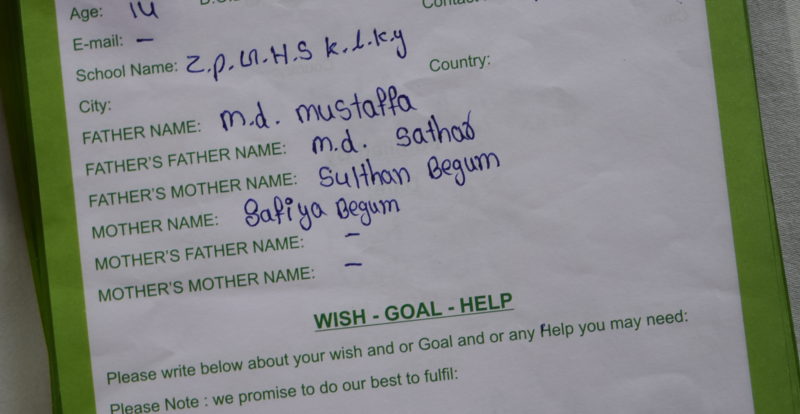 Age: 14
E-mail: –
School Name: Z.P.G.H.S K.L.K.Y
City: Country:
FATHER NAME: m.d. mustaffa
FATHER'S FATHER NAME: m.d. Sathar
FATHER'S MOTHER NAME: Sulthan Begum
MOTHER NAME: Safiya Begum
MOTHER'S FATHER NAME: –
MOTHER'S MOTHER NAME: –
WISH - GOAL - HELP
Please write below about your wish and or Goal and or any Help you may need:
Please Note : we promise to do our best to fulfil: